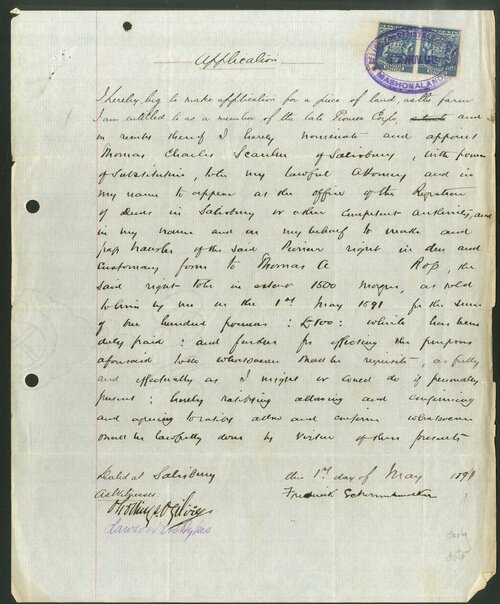 Application
I hereby beg to make application for a piece of land, as the farm
I am entitled to as a member of the late Pioneer Corps, and
in results thereof I hereby nominate and appoint
Thomas Charles Scanlen of Salisbury, with power
of Substitution, to be my lawful Attorney and in
my name to appear at the office of the Registrar
of deeds in Salisbury or other competent authority, and
in my name and on my behalf to make and
pass transfer of the said Pioneer right in due and
customary form to Thomas A Ross, the
said right to be in extent 1500 morgen, as sold
to him by me on the 1st May 1891 for the sum
of one hundred pounds : £100 : which has been
duly paid : and further for effecting the purposes
aforesaid to do whatsoever shall be requisite, as fully
and effectually as I might or could do if personally
present ; hereby ratifying allowing and confirming
and agreeing to ratify allow and confirm whatsoever
shall be lawfully done by virtue of these presents
Dated at Salisbury this 1st day of May 1891
As Witnesses
Frederick
MASHONALAND